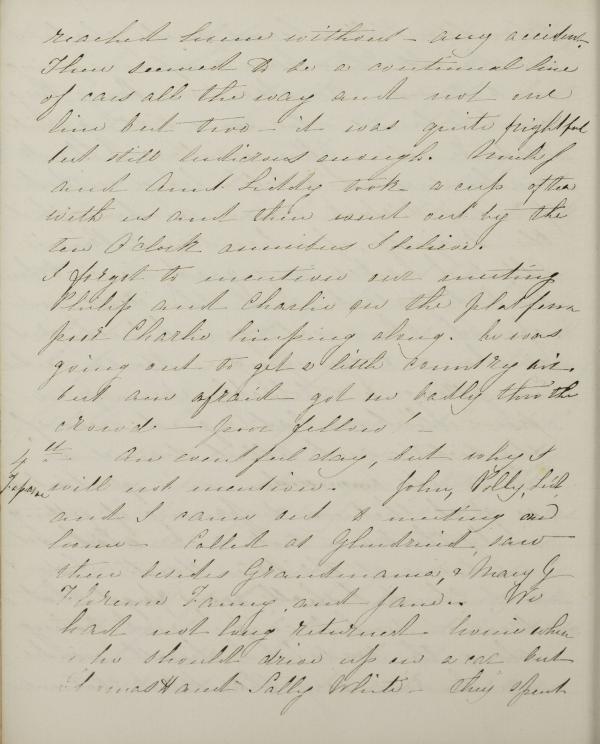 reached home without - any accident.
There seemed to be a continual line
of cars all the way and not one
line but two - it was quite frightful
but still ludicrous enough.
and Aunt Liddy took a cup of tea
with us and then went out by the
ten O'clock omnibus I believe.
I forgot to mention our meeting
Philip and Charlie on the platform
poor Charlie limping along. he was
going out to get a little country air.
but am afraid got on badly thro the
crowd - poor fellow! -
4th. An eventful day, but why I
will not mention. John, Polly, Lid,
and I came out to meeting and
home - Called at Glendruid, saw
there besides Grandmama, & Mary G
Florence Fanny, and Jane. We
had not long returned home when
who should drive up on a car but
Aunt Sally White - they spent